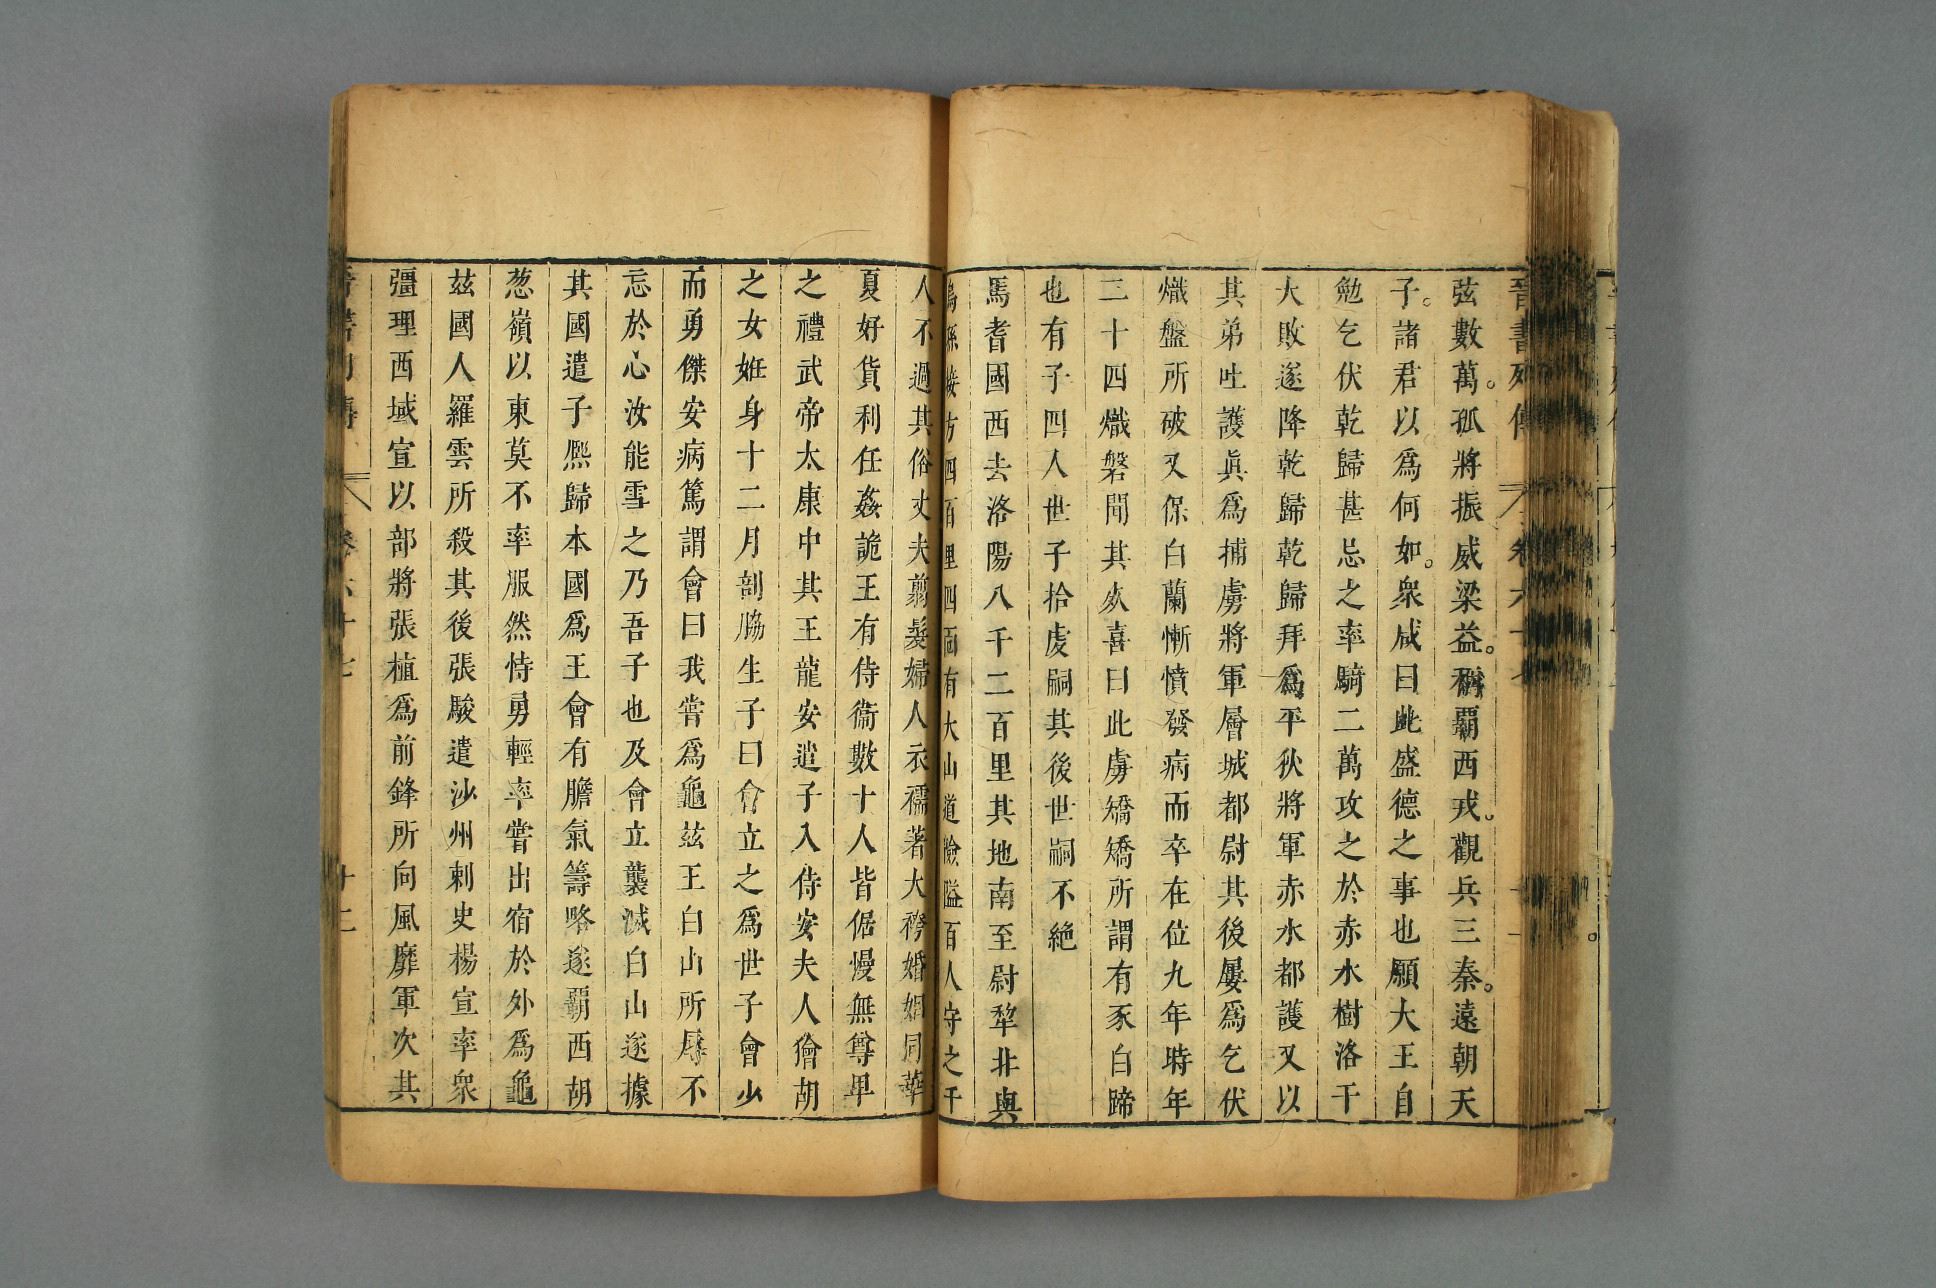 晉書列傳 卷六十七
弦數萬。孤將振威梁益。稱霸西戎。觀兵三秦。遠朝天
子。諸君以爲何如。衆咸曰此盛德之事也願大王自
勉乞伏乾歸甚忌之率騎二萬攻之於赤水樹洛干
大敗遂降乾歸乾歸拜爲平狄將軍赤水都護又以
其弟吐護眞爲捕虜將軍層城都尉其後屢爲乞伏
熾盤所破又保白蘭慚憤發病而卒在位九年時年
二十四熾磐聞其死喜曰此虜矯矯所謂有豕白蹄
也有子四人世子拾虔嗣其後世嗣不絶
焉耆國西去洛陽八千二百里其地南至尉犁北與
烏孫接方四百里四面有大山道險隘百人守之千
人不過其俗丈夫翦髮婦人衣襦著大袴婚姻同華
夏好貨利任姦詭王有侍衞數十人皆倨慢無尊卑
之禮武帝太康中其王龍安遣子入侍安夫人獪胡
之女姙身十二月剖脇生子曰會立之爲世子會少
而勇傑安病篤謂會曰我嘗爲龜玆王白山所辱不
忘於心汝能雪之乃吾子也及會立襲滅白山遂據
其國遣子熙歸本國爲王會有膽氣籌略遂霸西胡
葱嶺以東莫不率服然恃勇輕率嘗出宿於外爲龜
玆國人羅雲所殺其後張駿遣沙州刺史楊宣率衆
彊理西域宣以部將張植爲前鋒所向風靡軍次其
晉書列傳 卷六十七 十二